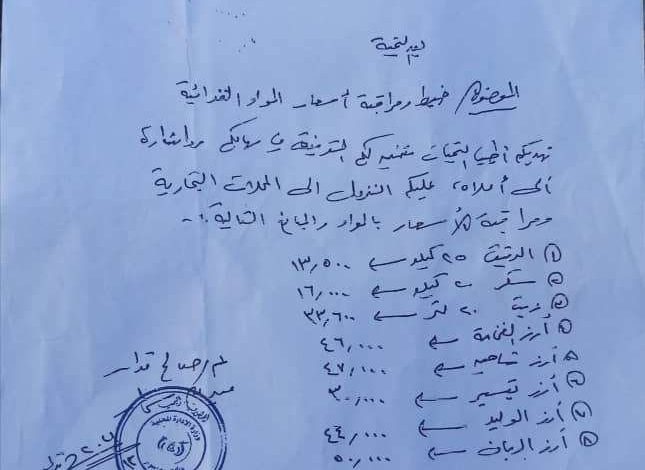 بعد التحية
الموضوع/ ضبط ومراقبة أسعار المواد الغذائية
نهديكم أطيب التحيات متمنيه لكم التوفيق في مهامكم وبالاشارة
الى أعلاه، عليكم النزول الى المحلات التجارية
ومراقبة الأسعار بالمواد والمبالغ التالية:-
① الدقيق ٢٥ كيلو ← ١٣,٥٠٠
② سكر ٢٠ كيلو ← ١٦,٠٠٠
③ زيت ٢٠ لتر ← ٣٣,٦٠٠
④ أرز الفخامة ← ٤٦,٠٠٠
⑤ أرز شاهيه ← ٤٧,٠٠٠
⑥ أرز تيسير ← ٣٠,٠٠٠
⑦ أرز الوليد ← ٤٤,٠٠٠
⑧ أرز الربان ← ٥٠,٠٠٠
م/صالح
وزارة الإدارة المحلية